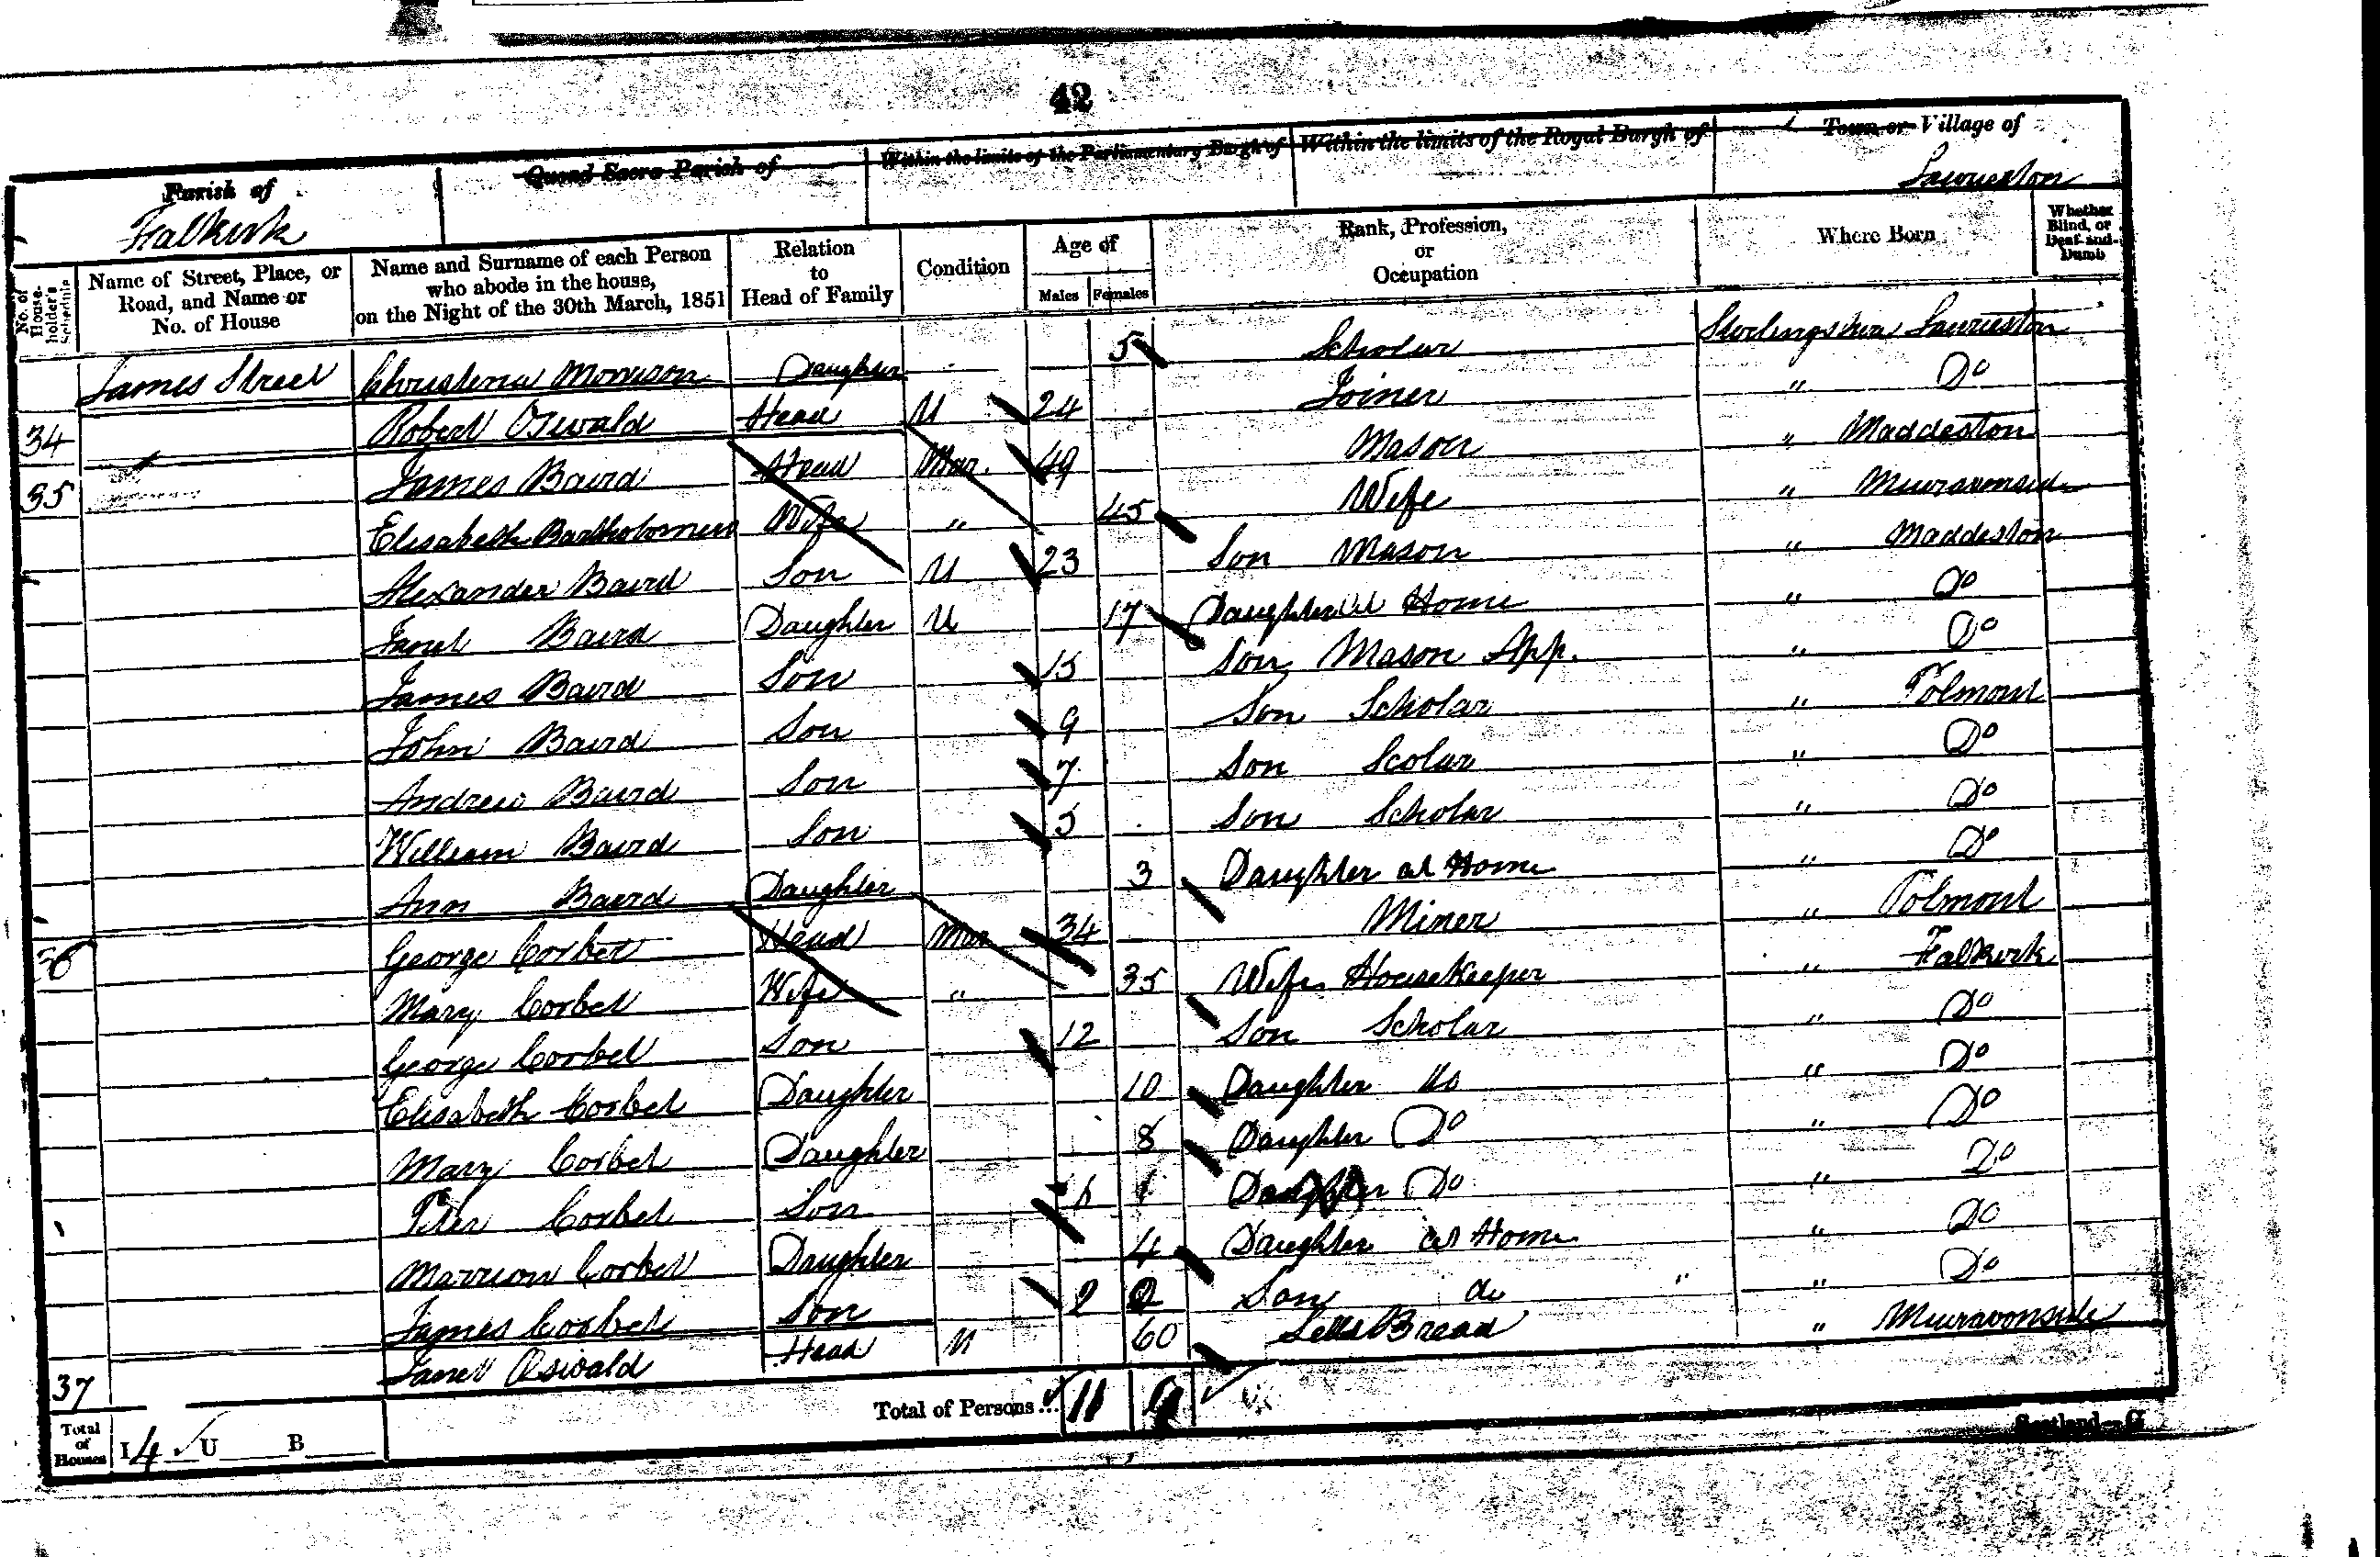 42
Parish of Quoad Sacra Parish of Within the limits of the Parliamentary Burgh of Within the limits of the Royal Burgh of Town or Village of
Falkirk Laurieston
No. of House-holder's Schedule Name of Street, Place, or Road, and Name or No. of House Name and Surname of each Person who abode in the house, on the Night of the 30th March, 1851 Relation to Head of Family Condition Age of Males Females Rank, Profession, or Occupation Where Born Whether Blind, or Deaf-and-Dumb
James Street Christena Morrison Daughter 5 Scholar Stirlingshire Laurieston
34 Robert Oswald Head U 24 Joiner " Do
35 James Baird Head Mar. 49 Mason " Maddeston
Elisabeth Bartholomew Wife " 45 Wife " Muiravonside
Alexander Baird Son U 23 Son Mason " Maddeston
Janet Baird Daughter U 17 Daughter at Home " Do
James Baird Son 15 Son Mason App. " Do
John Baird Son 9 Son Scholar " Polmont
Andrew Baird Son 7 Son Scolar " Do
William Baird Son 5 Son Scholar " Do
Ann Baird Daughter 3 Daughter at Home " Do
36 George Corbet Head Mar 34 Miner " Polmont
Mary Corbet Wife " 35 Wife Housekeeper " Falkirk
George Corbet Son 12 Son Scholar " Do
Elisabeth Corbet Daughter 10 Daughter do " Do
Mary Corbet Daughter 8 Daughter Do " Do
Peter Corbet Son 6 Daughter Do " Do
Marrion Corbet Daughter 4 Daughter at Home " Do
James Corbet Son 2 Son do " " Do
37 Janet Oswald Head U 60 Sells Bread " Muiravonside
Total of Houses I 4 U B Total of Persons... 11 9
Scotland—G